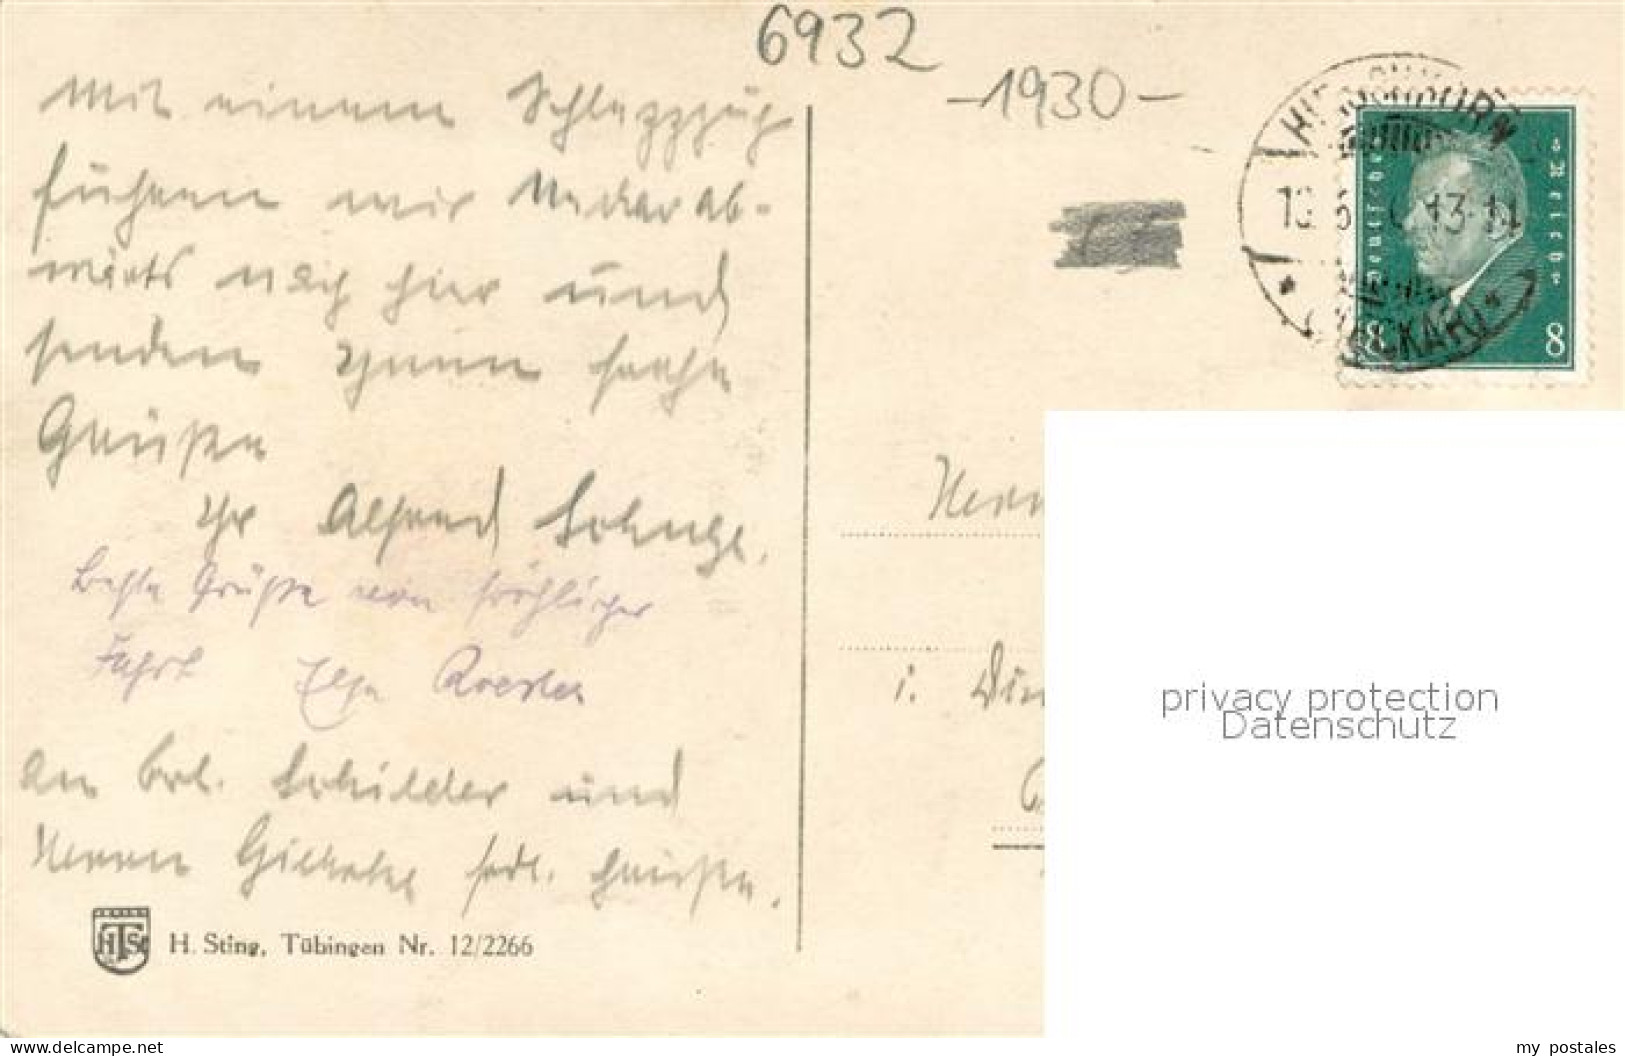 6932
-1930-
Mit einem Schleppzug
führen wir Neckar ab-
wärts nach hier und
senden Ihnen frohe
Grüße
Ihr Alfred
Beste Grüße von fröhlicher
Fahrt Elsa
An Frl. Schilder und
Herrn frdl. Grüße.
H. Sting, Tübingen Nr. 12/2266
HIRSCHHORN
13-14
(NECKAR)
Deutsches Reich
8 8
Herrn
i.
privacy protection
Datenschutz
www.delcampe.net
my postales